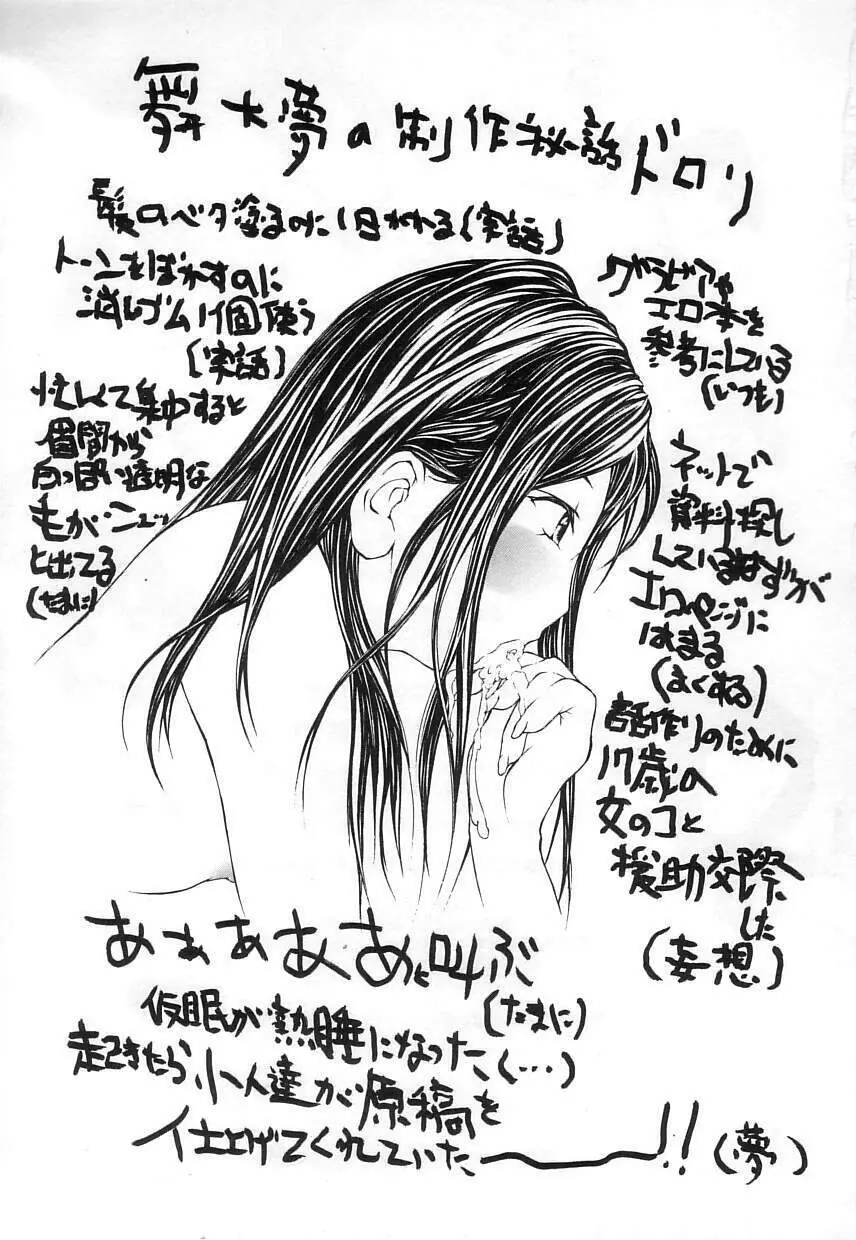 舞大夢の制作秘話ドロリ
髪のベタ塗るのに1日かかる(実話)
トーンをぼかすのに
消しゴム1個使う
(実話)
忙しくて集中すると
眉間から
白っぽい透明な
毛がニュッ
と出てる
(たまに)
グラビアや
エロ本を
参考にしている
(いつも)
ネットで
資料探し
しているはずが
エロページに
はまる
(よくある)
話作りのために
17歳の
女のコと
援助交際
した
(妄想)
あぁぁああと叫ぶ
(たまに)
仮眠が熱睡になった(…)
起きたら小人達が原稿を
仕上げてくれていたーーー!!(夢)